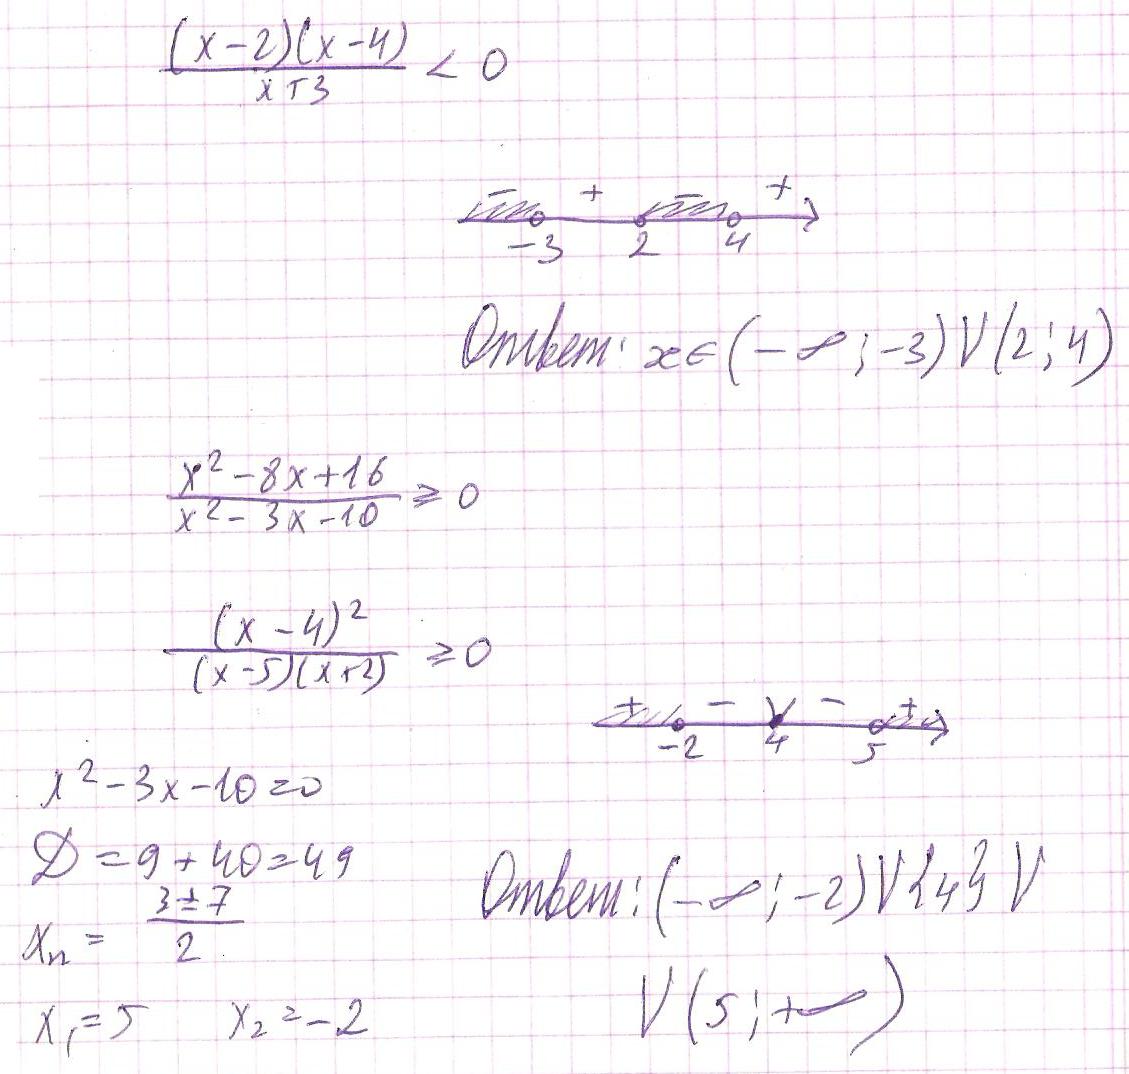 (x-2)(x-4)
x+3
< 0
- + - +
-3 2 4
Ответ: x∈(-∞;-3)V(2;4)
x²-8x+16
x²-3x-10
≥ 0
(x-4)²
(x-5)(x+2)
≥0
+ - V - +
-2 4 5
x²-3x-10=0
D=9+40=49
xn = 3±7
2
x1=5 x2=-2
Ответ: (-∞;-2)V{4}V
V(5;+∞)